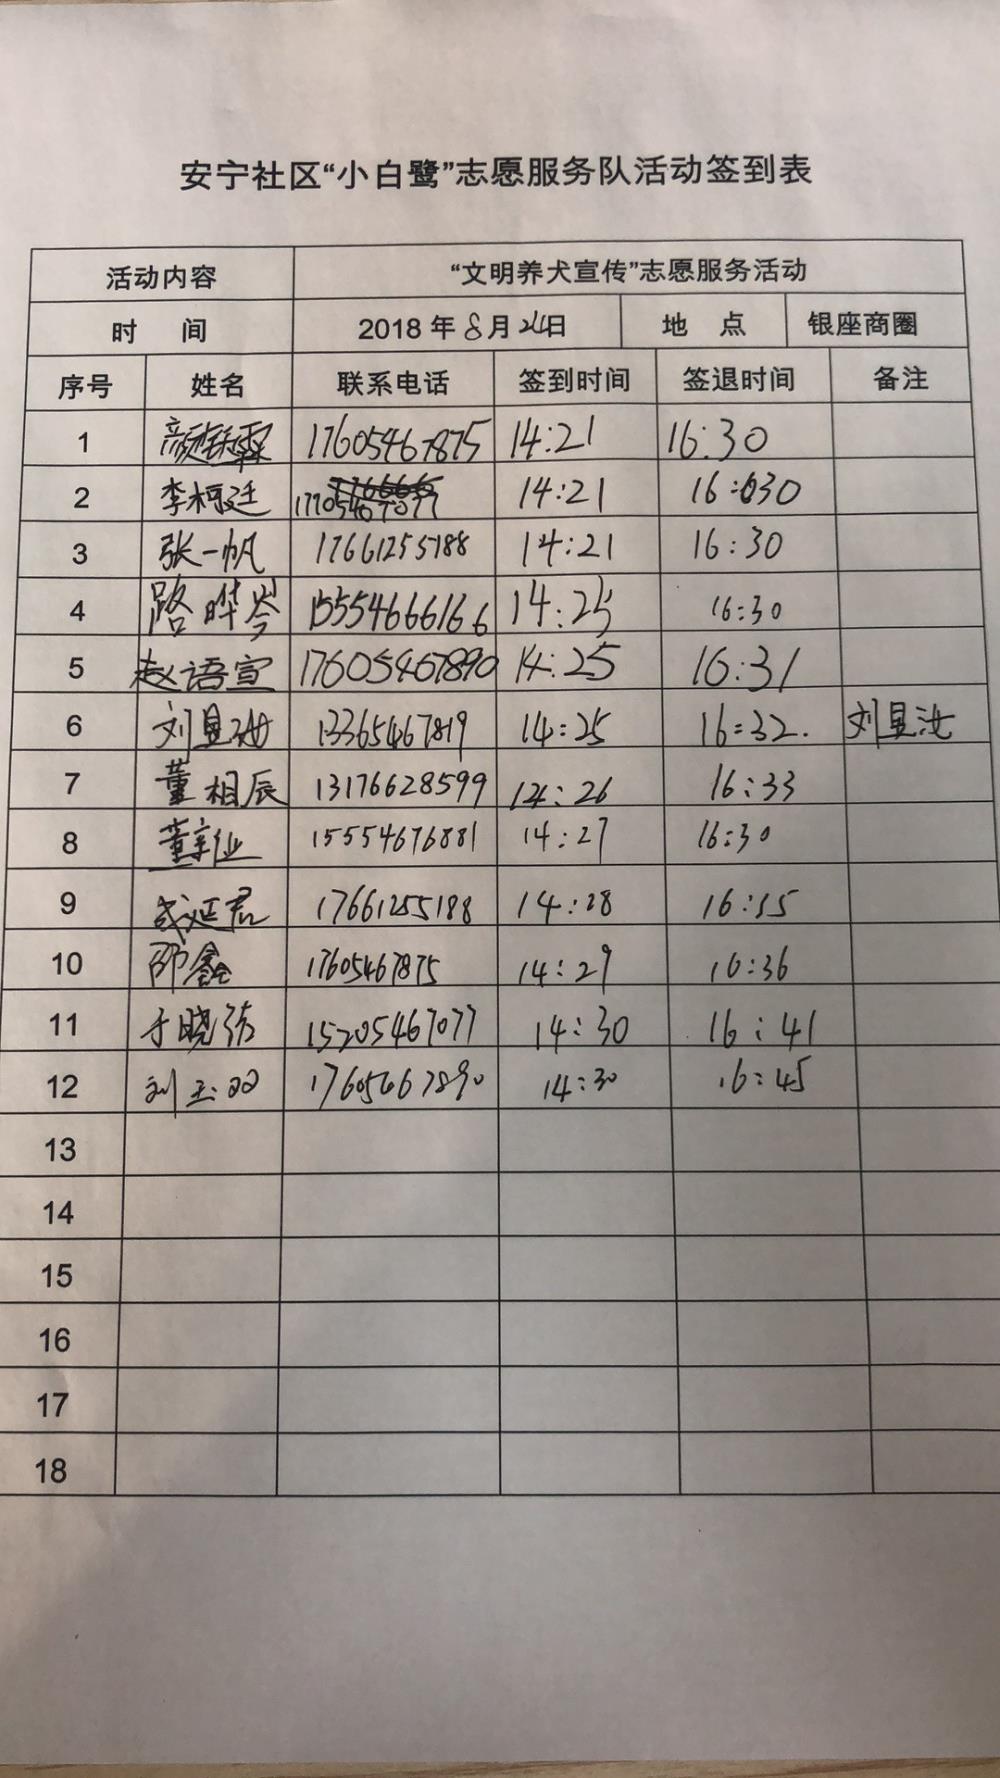 安宁社区“小白鹭”志愿服务队活动签到表
活动内容 “文明养犬宣传”志愿服务活动
时 间 2018 年 8 月 24日 地 点 银座商圈
序号 姓名 联系电话 签到时间 签退时间 备注
1 17605467875 14:21 16:30
2 李柯廷 17705467077 14:21 16:30
3 张一帆 17661255188 14:21 16:30
4 路晔岑 15554666166 14:25 16:30
5 赵语宣 17605467890 14:25 16:31
6 刘昱汝 13365467819 14:25 16:32. 刘昱汝
7 董相辰 13176628599 14:26 16:33
8 15554676881 14:27 16:30
9 成延君 17661255188 14:28 16:35
10 邵鑫 17605467875 14:29 16:36
11 于晓 15205467077 14:30 16:41
12 刘玉 14:30 16:45
13
14
15
16
17
18